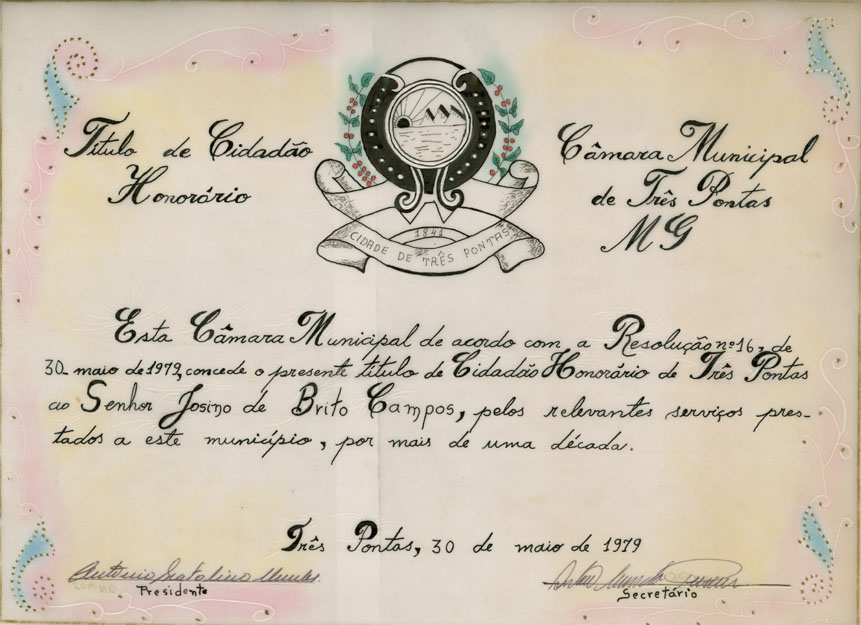 Título de Cidadão
Honorário
Câmara Municipal
de Três Pontas
MG
1841
CIDADE DE TRÊS PONTAS
Esta Câmara Municipal de acordo com a Resolução nº 16, de
30 maio de 1979, concede o presente título de Cidadão Honorário de Três Pontas
ao Senhor Josino de Brito Campos, pelos relevantes serviços pres-
tados a este município, por mais de uma década.
Três Pontas, 30 de maio de 1979
Antonio
Presidente
Secretário